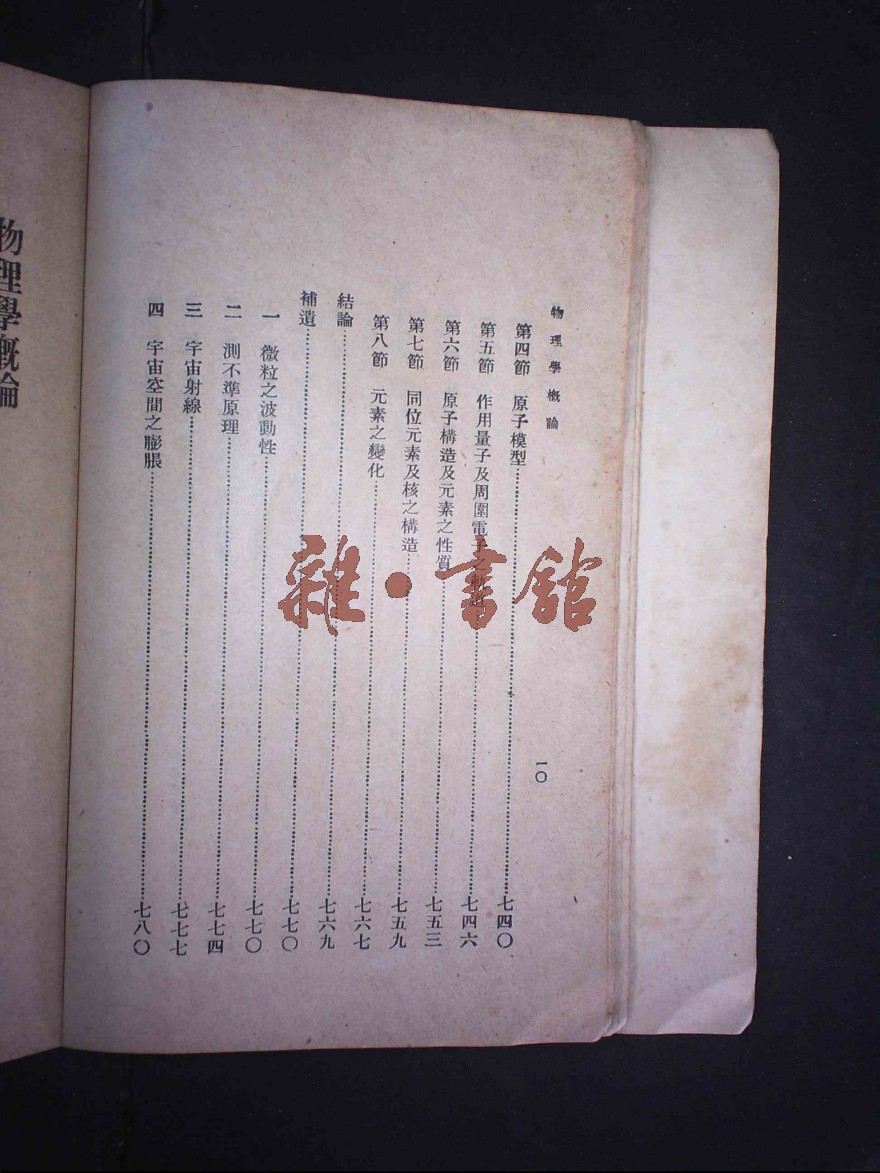 物理學概論
一〇
第四節 原子模型……七四〇
第五節 作用量子及周圍電子之……七四六
第六節 原子構造及元素之性質……七五三
第七節 同位元素及核之構造……七五九
第八節 元素之變化……七六七
結論……七六九
補遺……七七〇
一 微粒之波動性……七七〇
二 測不準原理……七七四
三 宇宙射線……七七七
四 宇宙空間之膨脹……七八〇
物理學概論
雜·書館